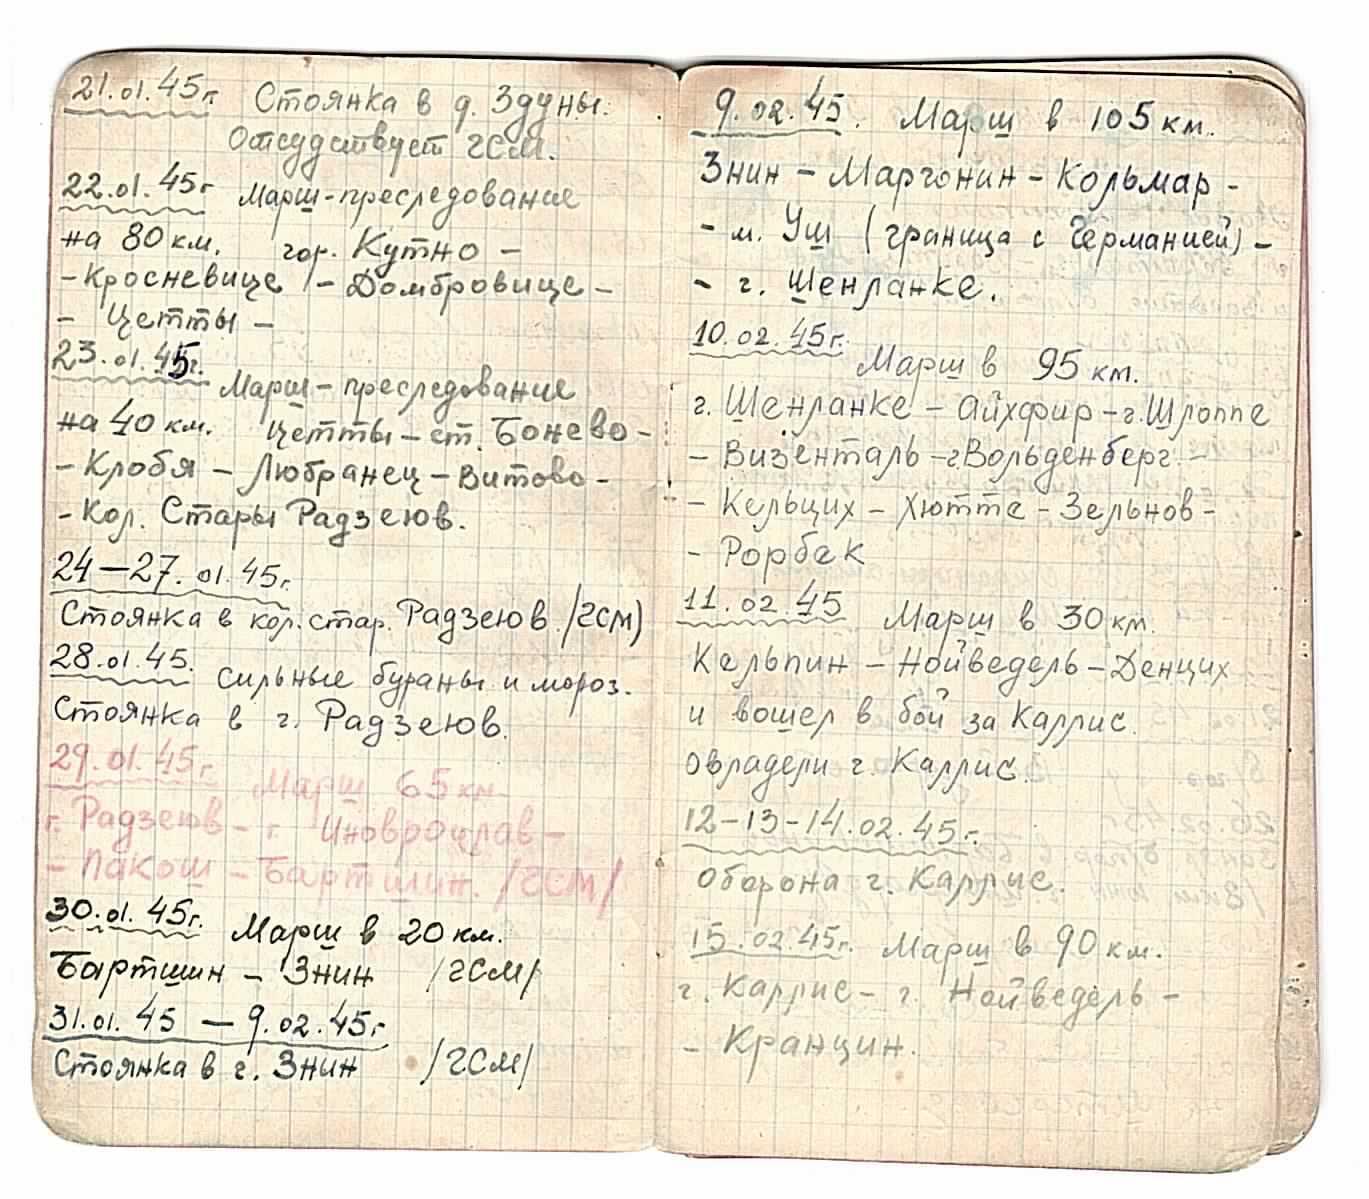 21.01.45г. Стоянка в д. Здуны.
Отсудствует ГСМ.
22.01.45г Марш-преследование
на 80 км. гор. Кутно -
- Кросневице - Домбровице -
- Цетты -
23.01.45г. Марш-преследование
на 40 км. Цетты - ст. Бонево -
- Клобя - Любранец - Витово -
- Кол. Стары Радзеюв.
24-27.01.45г.
Стоянка в кол. стар. Радзеюв /ГСМ)
28.01.45. сильные бураны и мороз.
Стоянка в г. Радзеюв.
29.01.45г. Марш 65 км
г. Радзеюв - г. Иновроцлав -
- Пакош - Бартшин. /ГСМ/
30.01.45г. Марш в 20 км.
Бартшин - Знин /ГСМ/
31.01.45 - 9.02.45г
Стоянка в г. Знин /ГСМ/
9.02.45. Марш в 105 км.
Знин - Маргонин - Кольмар -
- м. Уш (граница с Германией) -
- г. Шенланке.
10.02.45г. Марш в 95 км.
г. Шенланке - Айхфир - г. Шлоппе
- Визенталь - г Вольденберг -
- Кельцих - Хютте - Зельнов -
- Рорбек
11.02.45 Марш в 30 км.
Кельпин - Нойведель - Денцих
и вошел в бой за Каллис.
овладели г. Каллис.
12-13-14.02.45г.
Оборона г. Каллис.
15.02.45г. Марш в 90 км.
г. Каллис - г. Нойведель -
- Кранцин.